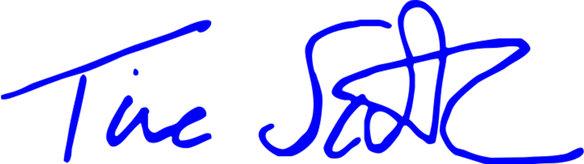 Tim Scott